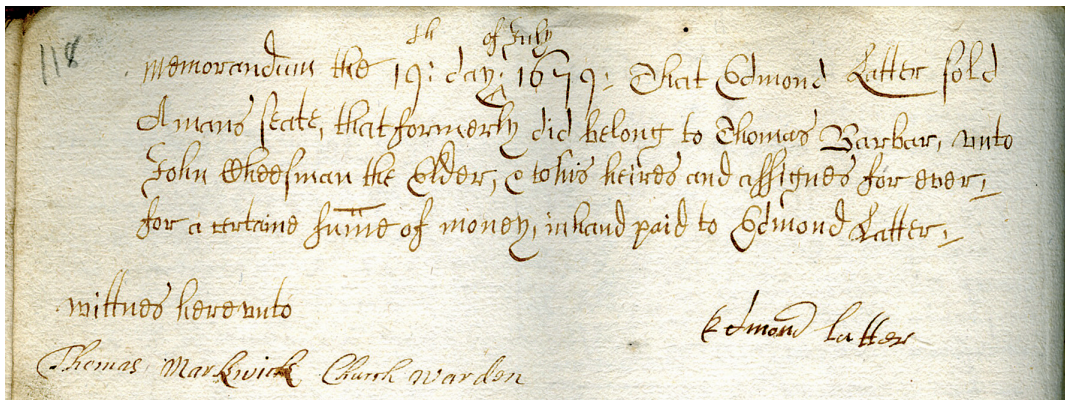 118
th of July
Memorandum the 19: day: 1679: That Edmond Latter sold
A mans seate, that formerly did belong to Thomas Barbar, vnto
John Cheesman the Elder, & to his heires and assignes for ever,
for a certaine sum̄e of money, in hand paid to Edmond Latter,
wittnes herevnto
Edmond latter
Thomas Markwick Church warden